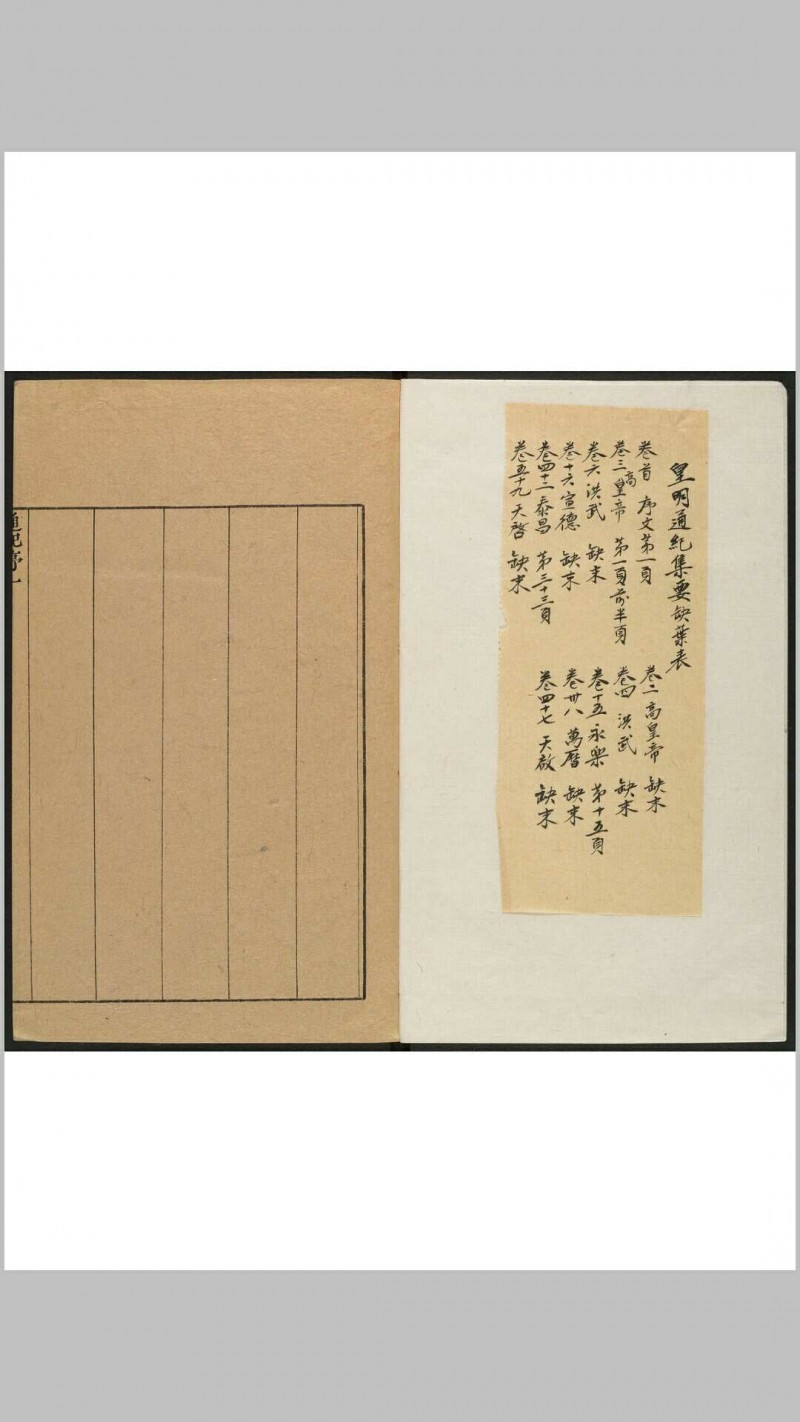 皇明通紀集要缺葉表
卷首 序文第一頁
卷二 高皇帝 缺末
卷三 高皇帝 第一頁前半頁
卷四 洪武 缺末
卷六 洪武 缺末
卷十五 永樂 第十五頁
卷十六 宣德 缺末
卷卅八 萬曆 缺末
卷四十二 泰昌 第三十三頁
卷四十七 天啟 缺末
卷五十九 天啓 缺末
通紀序一